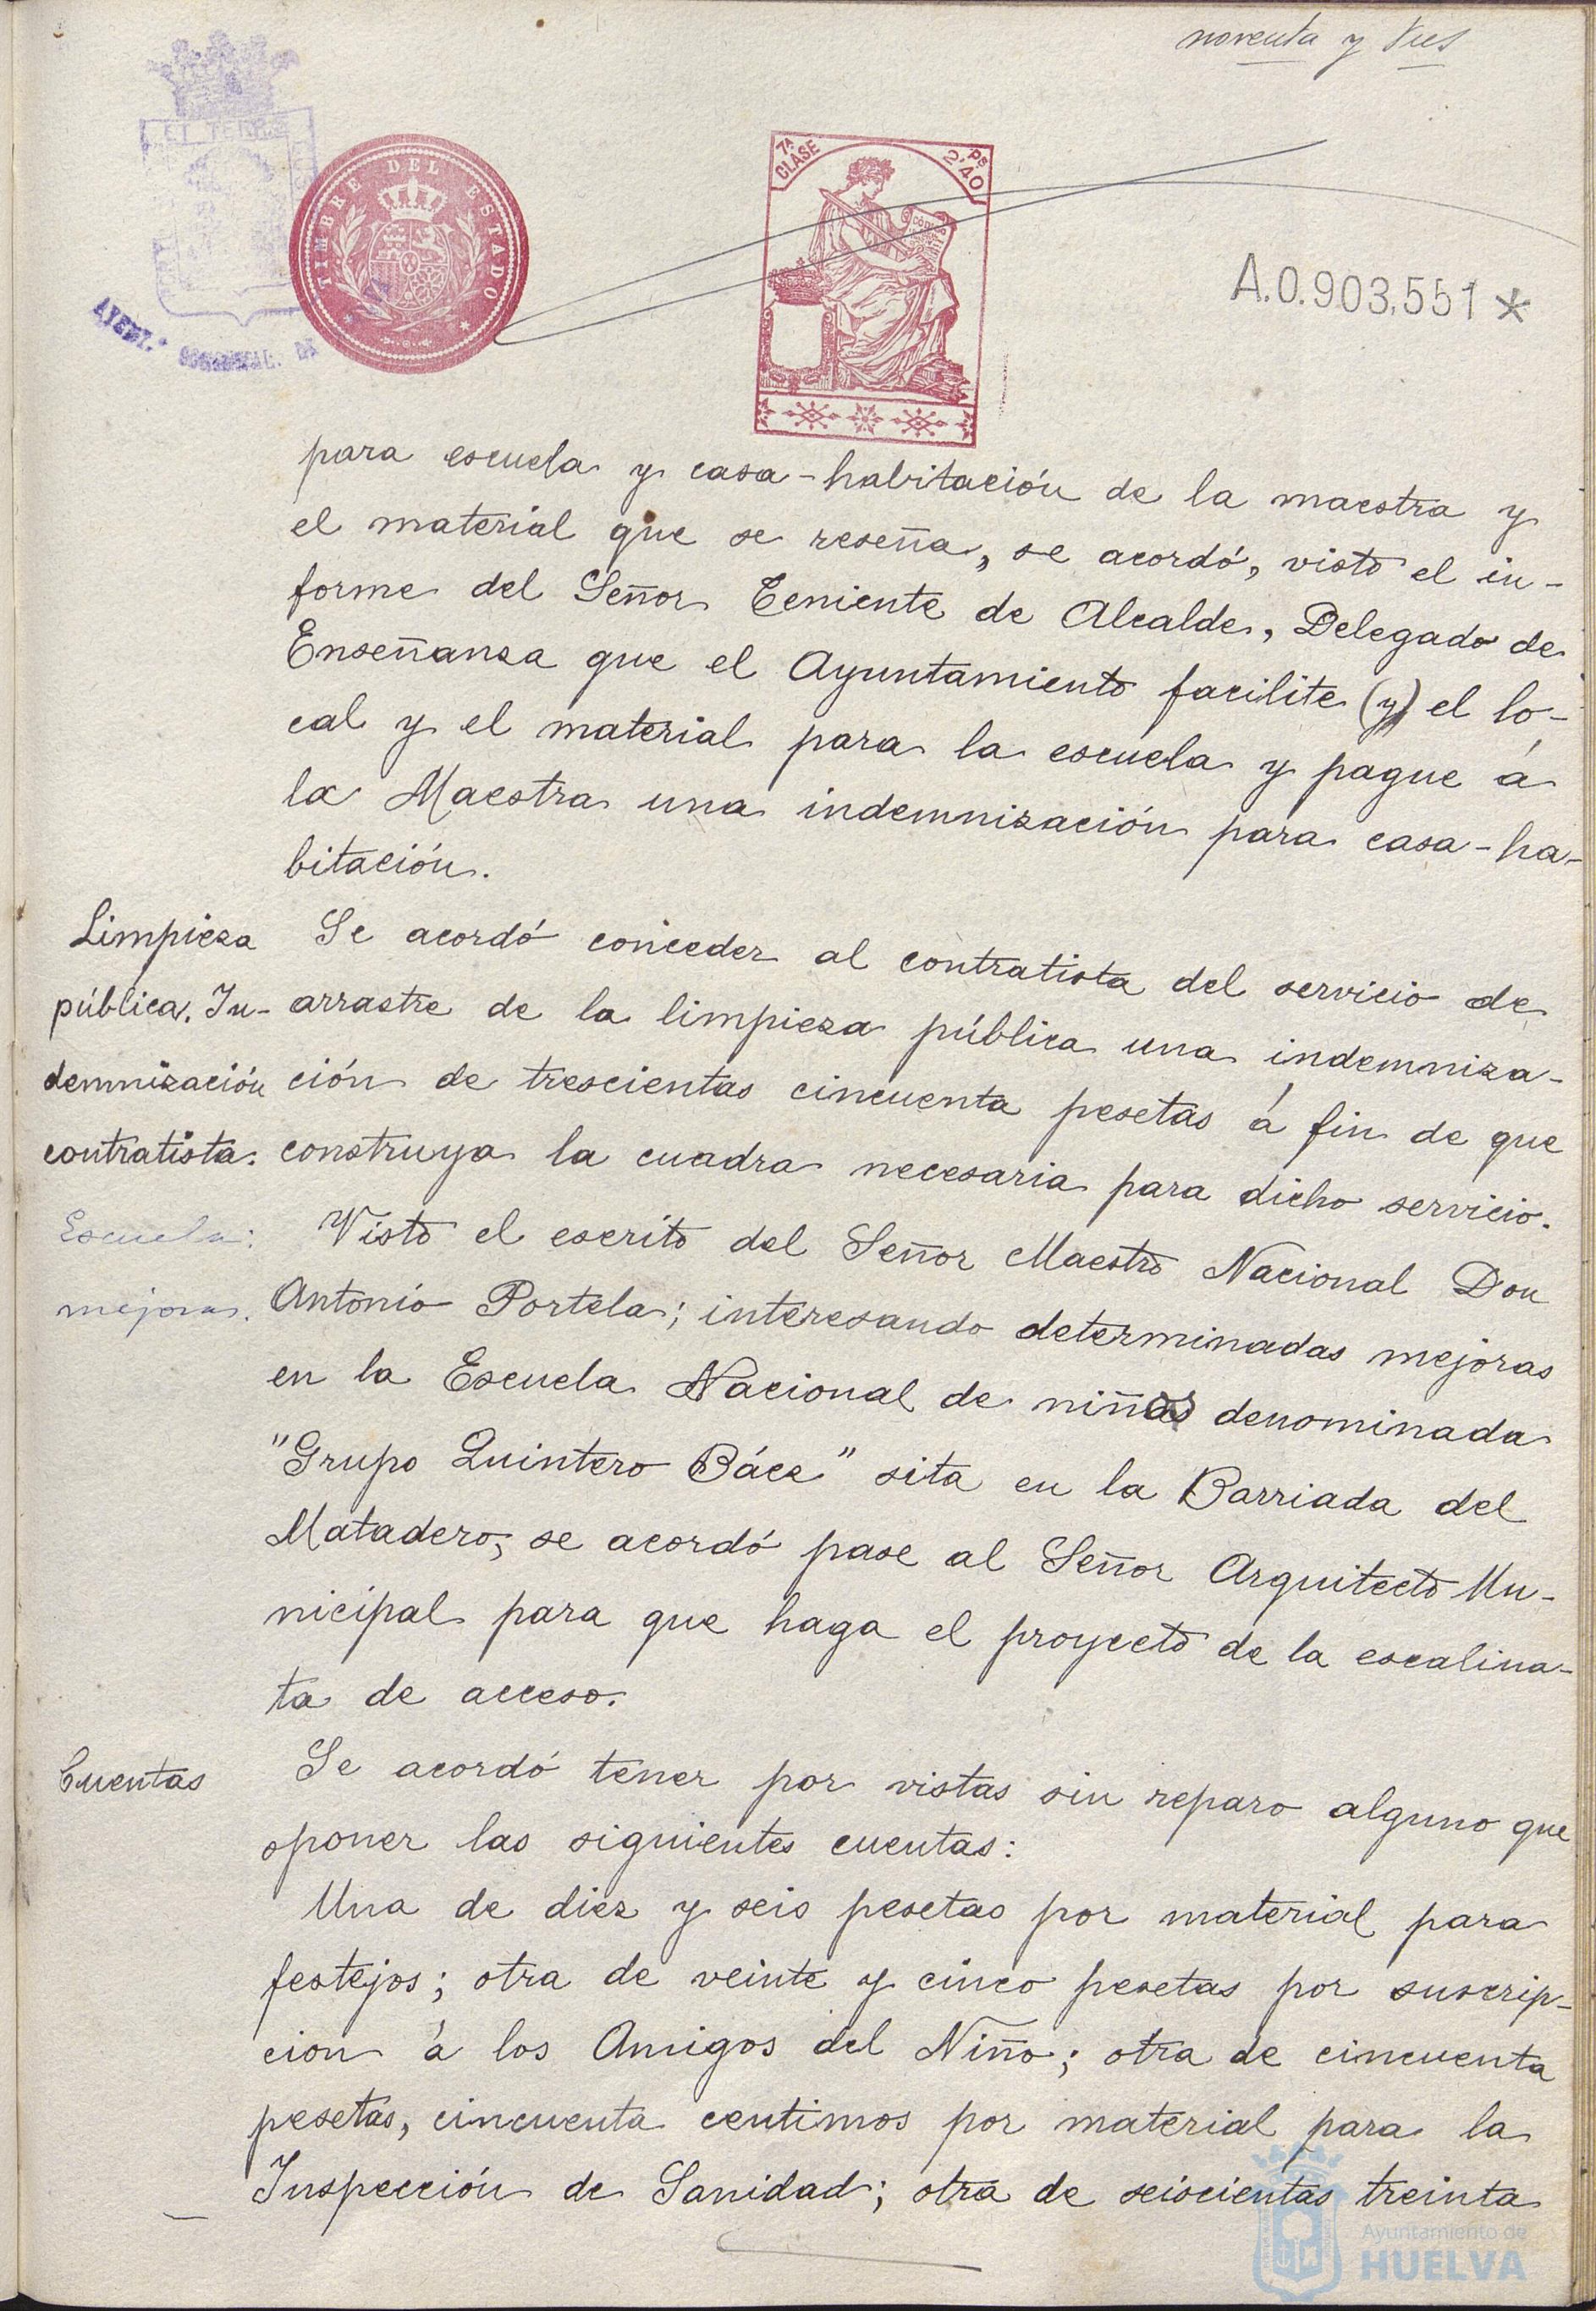 noventa y tres
TIMBRE DEL ESTADO
7ª CLASE
2'40 Pts
A.0.903,551*
AYUNT.º
para escuela y casa-habitación de la maestra y
el material que se reseña, se acordó, visto el in-
forme del Señor Teniente de Alcalde, Delegado de
Enseñanza que el Ayuntamiento facilite (y) el lo-
cal y el material para la escuela y pague á
la Maestra una indemnización para casa-ha-
bitación.
Limpieza
pública. In-
demnización
contratista.
Se acordó conceder al contratista del servicio de
arrastre de la limpieza pública una indemniza-
ción de trescientas cincuenta pesetas á fin de que
construya la cuadra necesaria para dicho servicio.
Escuela:
mejoras.
Visto el escrito del Señor Maestro Nacional Don
Antonio Portela; interesando determinadas mejoras
en la Escuela Nacional de niños denominada
"Grupo Quintero Báez" sita en la Barriada del
Matadero, se acordó pase al Señor Arquitecto Mu-
nicipal para que haga el proyecto de la escalina-
ta de acceso.
Cuentas
Se acordó tener por vistas sin reparo alguno que
oponer las siguientes cuentas:
Una de diez y seis pesetas por material para
festejos; otra de veinte y cinco pesetas por suscrip-
cion á los Amigos del Niño; otra de cincuenta
pesetas, cincuenta centimos por material para la
Inspección de Sanidad; otra de seiscientas treinta
Ayuntamiento de
HUELVA